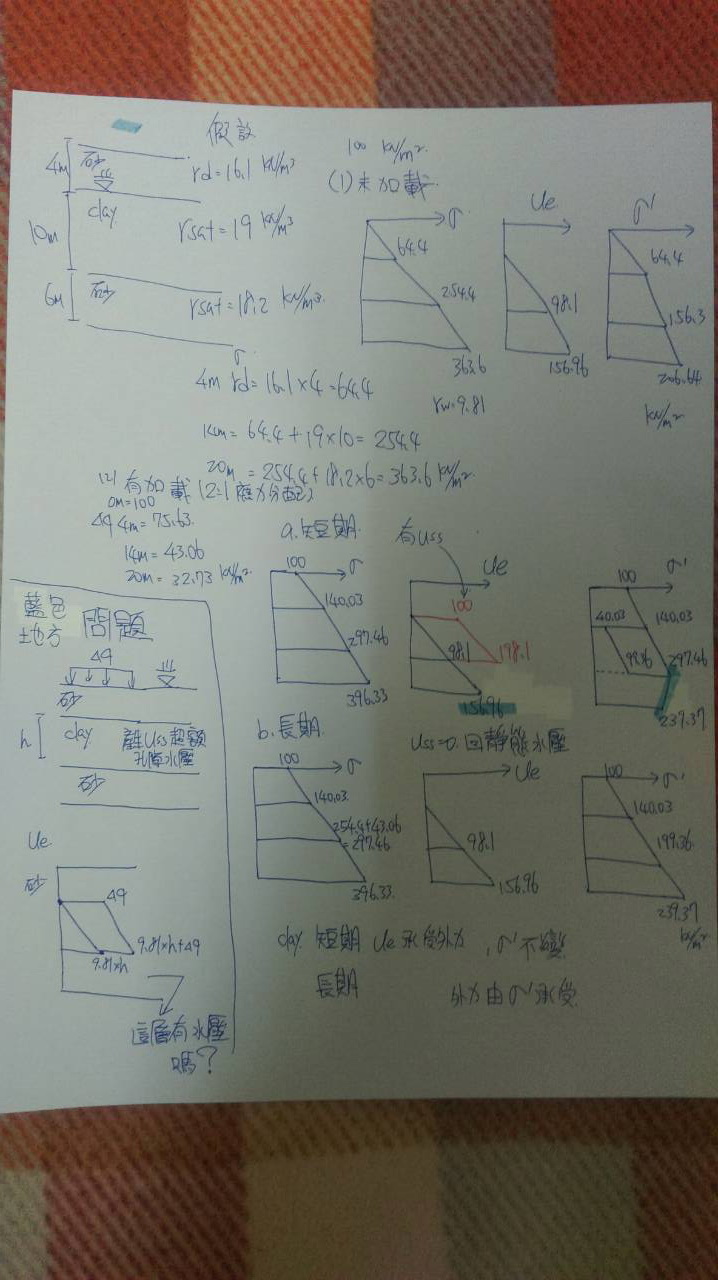 假設
4m
砂
rd=16.1 kN/m³
10m
clay
rsat=19 kN/m³
6m
砂
rsat=18.2 kN/m³
100 kN/m².
(1)未加載
σ
64.4
254.4
363.6
Ue
98.1
156.96
σ'
64.4
156.3
206.64
kN/m²
rw=9.81
σ
4m rd=16.1×4=64.4
14m=64.4+19×10=254.4
20m=254.4+18.2×6=363.6 kN/m².
(2)有加載(2:1應力分配)
0m=100
Δq 4m=75.63.
14m=43.06
20m=32.73 kN/m².
a.短期.
100
σ
140.03
297.46
396.33
有Uss
Ue
100
98.1
198.1
156.96
σ'
100
40.03
140.03
99.36
297.46
237.37
b.長期.
100
σ
140.03.
254.4+43.06
=297.46
396.33.
Uss=0.回靜態水壓
Ue
98.1
156.96
100
σ'
140.03
199.36.
239.37
kN/m²
clay 短期 Ue承受外力,σ'不變
長期 外力由σ'承受
藍色
土地方
問題
Δq
砂
h
clay
Uss超額
孔隙水壓
砂
Ue
砂
Δq
9.81×h+Δq
9.81×h
這層有水壓
嗎?